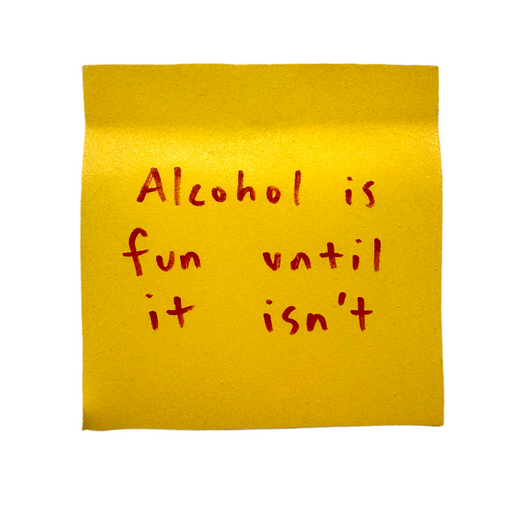 Alcohol is
fun until
it isn't